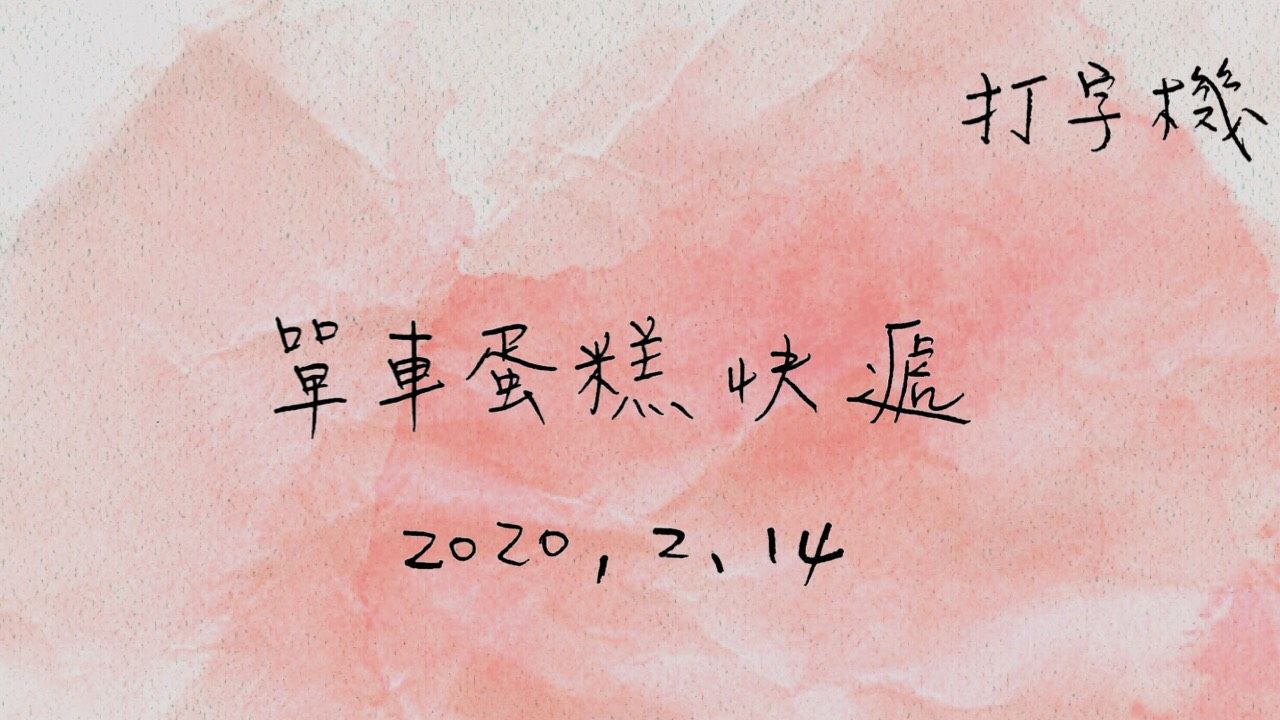 打字機
單車蛋糕快遞
2020, 2、14